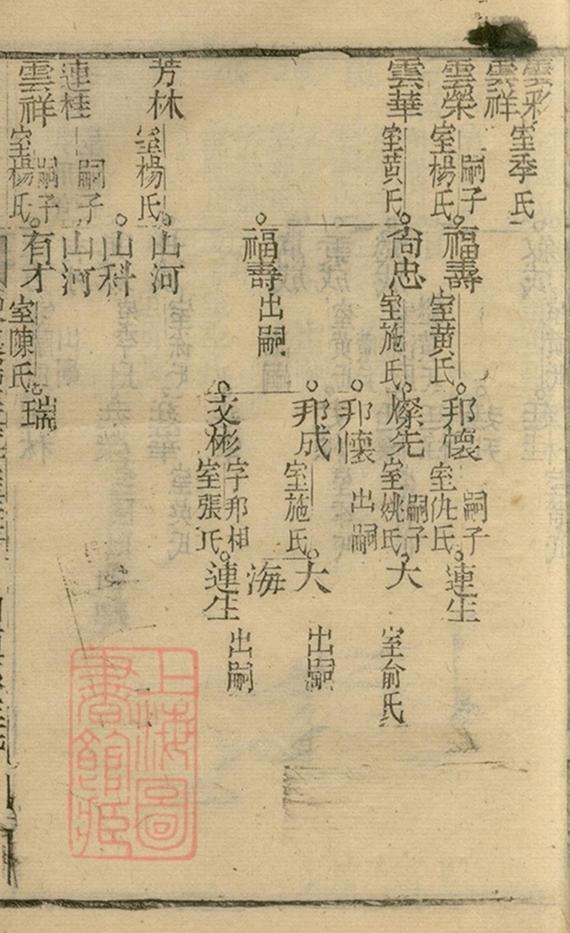 雲彩 室季氏
雲祥
雲榮 室楊氏 嗣子 福壽 室黃氏 邦懷 室仇氏 嗣子 連生
雲華 室黃氏 尚忠 室施氏 燦先 室姚氏 嗣子 大 室俞氏
邦懷 出嗣
邦成 室施氏 大 出嗣
福壽 出嗣
海
文彬 字邦相 室張氏 連生 出嗣
芳林 室楊氏 山河
山科
連桂 嗣子 山河
雲祥 室楊氏 嗣子 有才 室陳氏 瑞
上海圖
書館藏